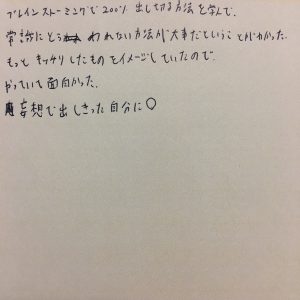 ブレインストーミングで200%出し切る方法を学んで、
常識にとらわれない方法が大事だということがわかった。
もっとキッチリしたものをイメージしていたので、
やっていて面白かった。
妄想で出しきった自分に○